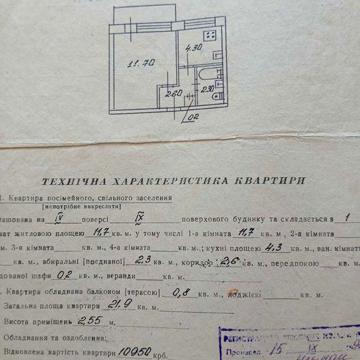 11.70
4.30
2.60
2.30
0.2
ТЕХНІЧНА ХАРАКТЕРИСТИКА КВАРТИРИ
1. Квартира посімейного, спільного заселення
[непотрібне викреслити]
ташована на IV поверсі IX поверхового будинку та складається з 1
нат житловою площею 11,7 кв. м, у тому числі 1-а кімната 11,7 кв. м, 2-а кімната
кв. м, 3-я кімната кв. м, 4-а кімната кв. м; кухні площею 4,3 кв. м, ванн. кімнати
кв. м, вбиральні [поєднаної] 2,3 кв. м, коридо 2,6 кв. м, передпокою кв. м,
дованої шафи 0,2 кв. м, веранди кв. м.
Квартира обладнана балконом [терасою] 0,8 кв. м, лоджією кв. м.
Загальна площа квартири 21.9 кв. м.
Висота приміщень 2,55 м.
Обладнання та оздоблення:
Відновлена вартість квартири 10950 крб.
15 IX